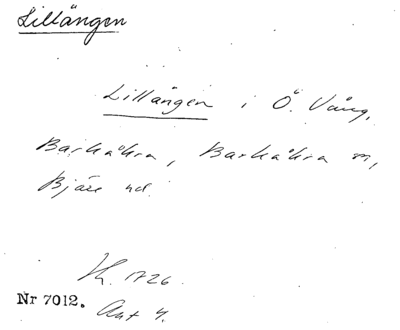 Lillängen
Lillängen i Ö. Vång,
Barkåkra, Barkåkra sn,
Bjäre hd.
1726.
Nr 7012. Akt 4.